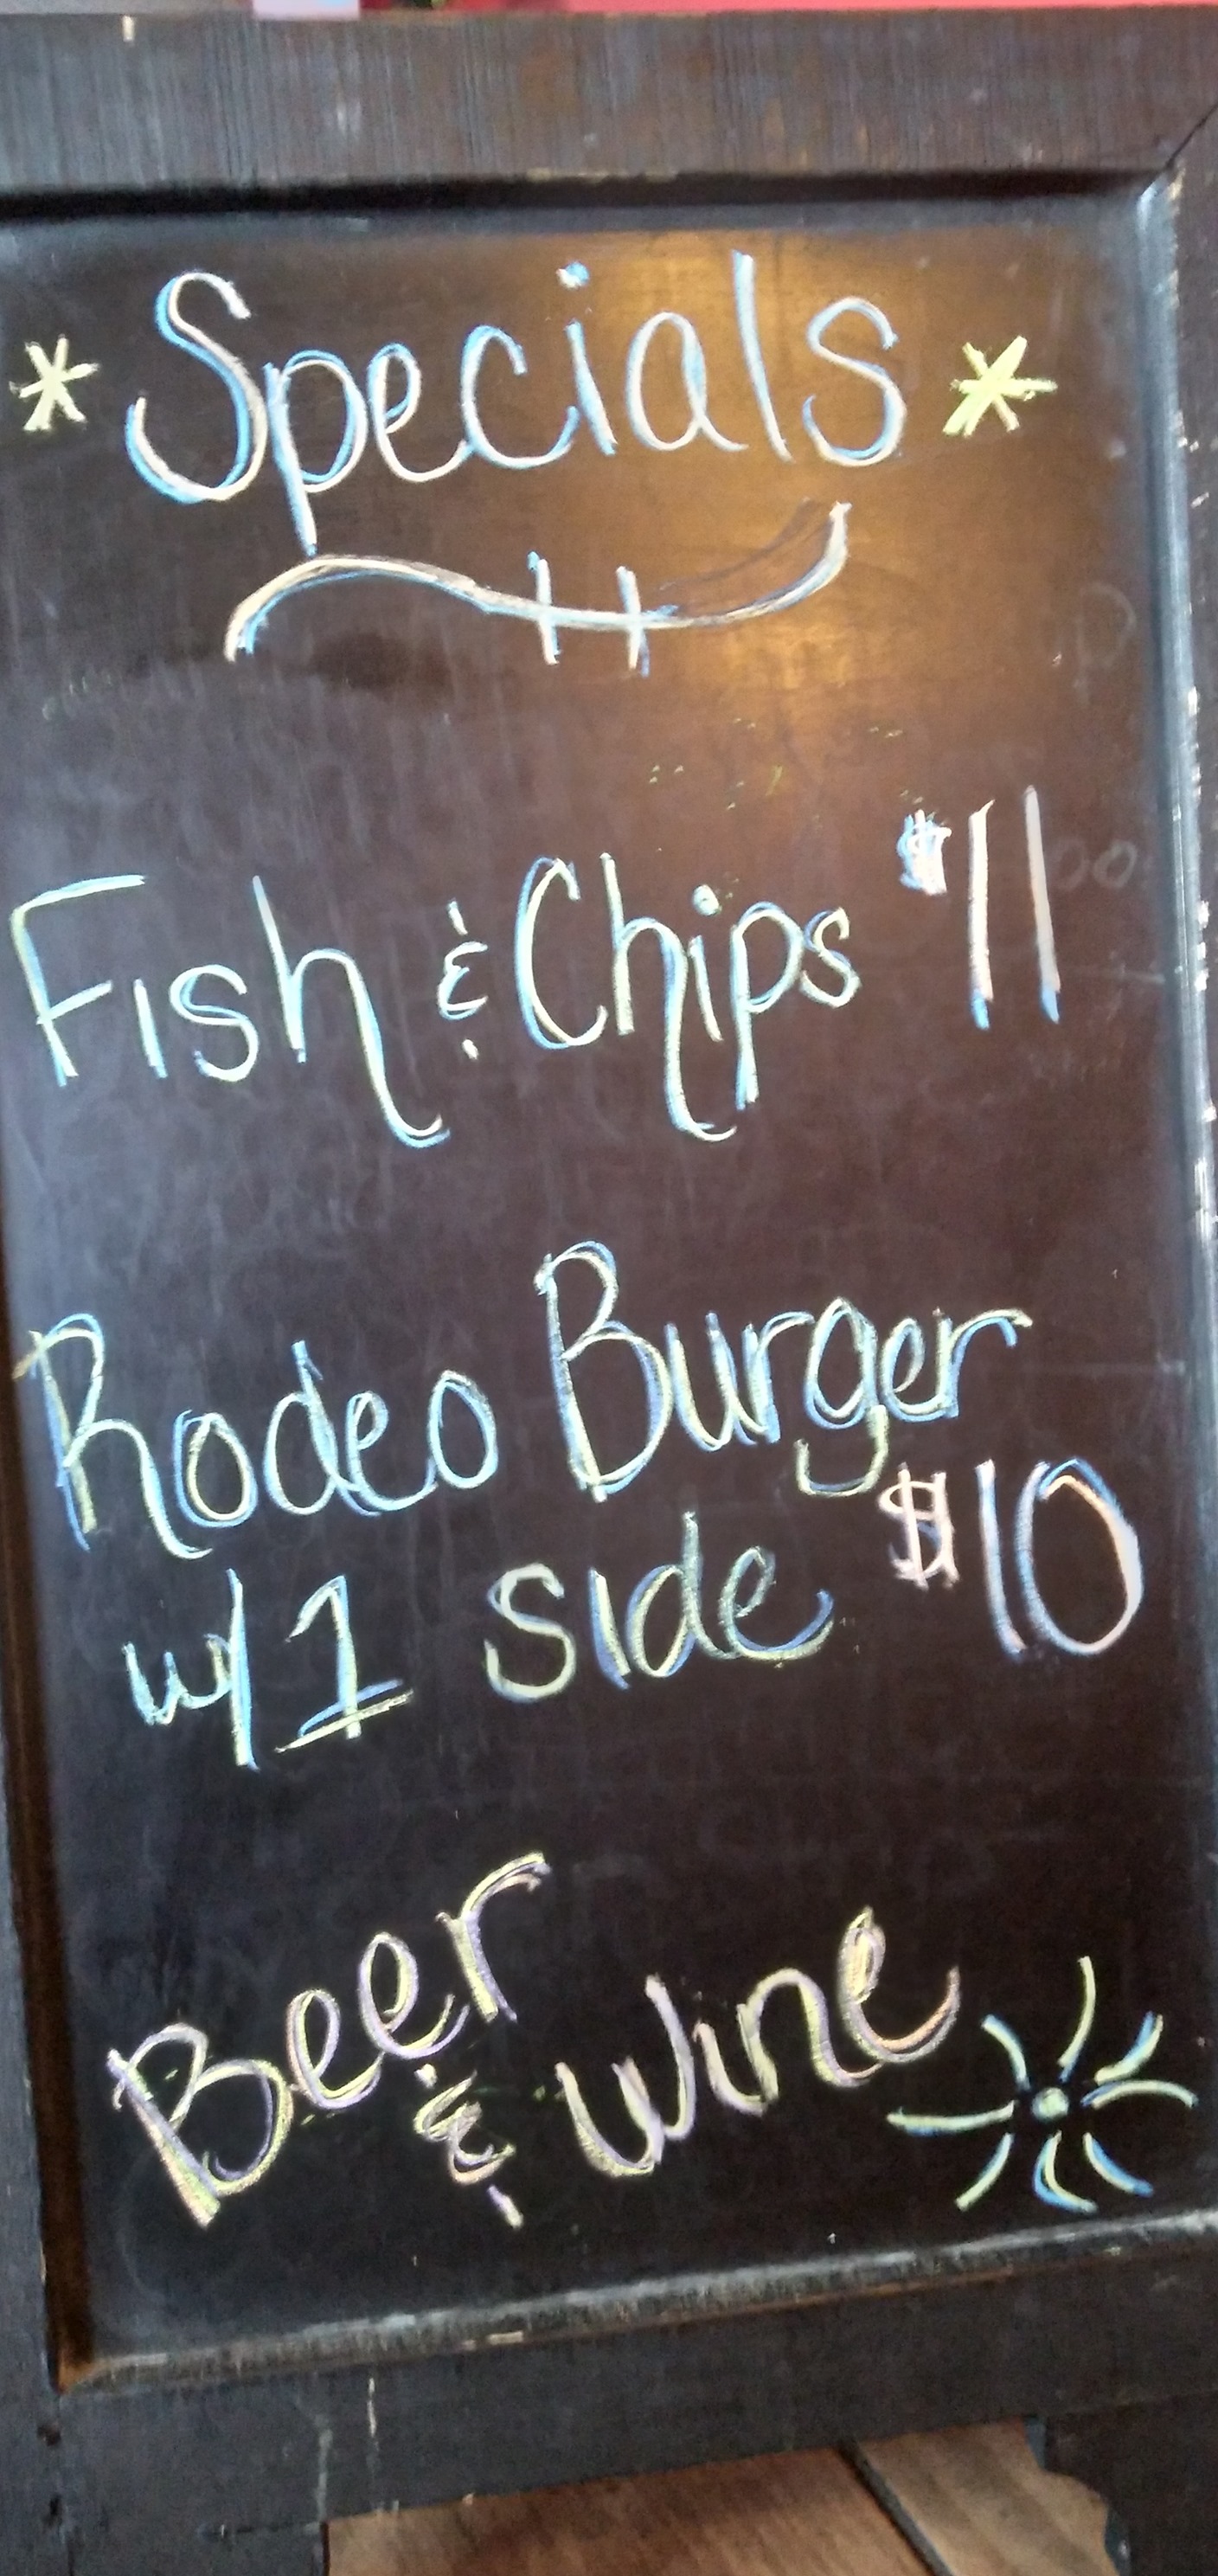 * Specials *
Fish & Chips $11
Rodeo Burger
w/ 1 side $10
Beer
& Wine